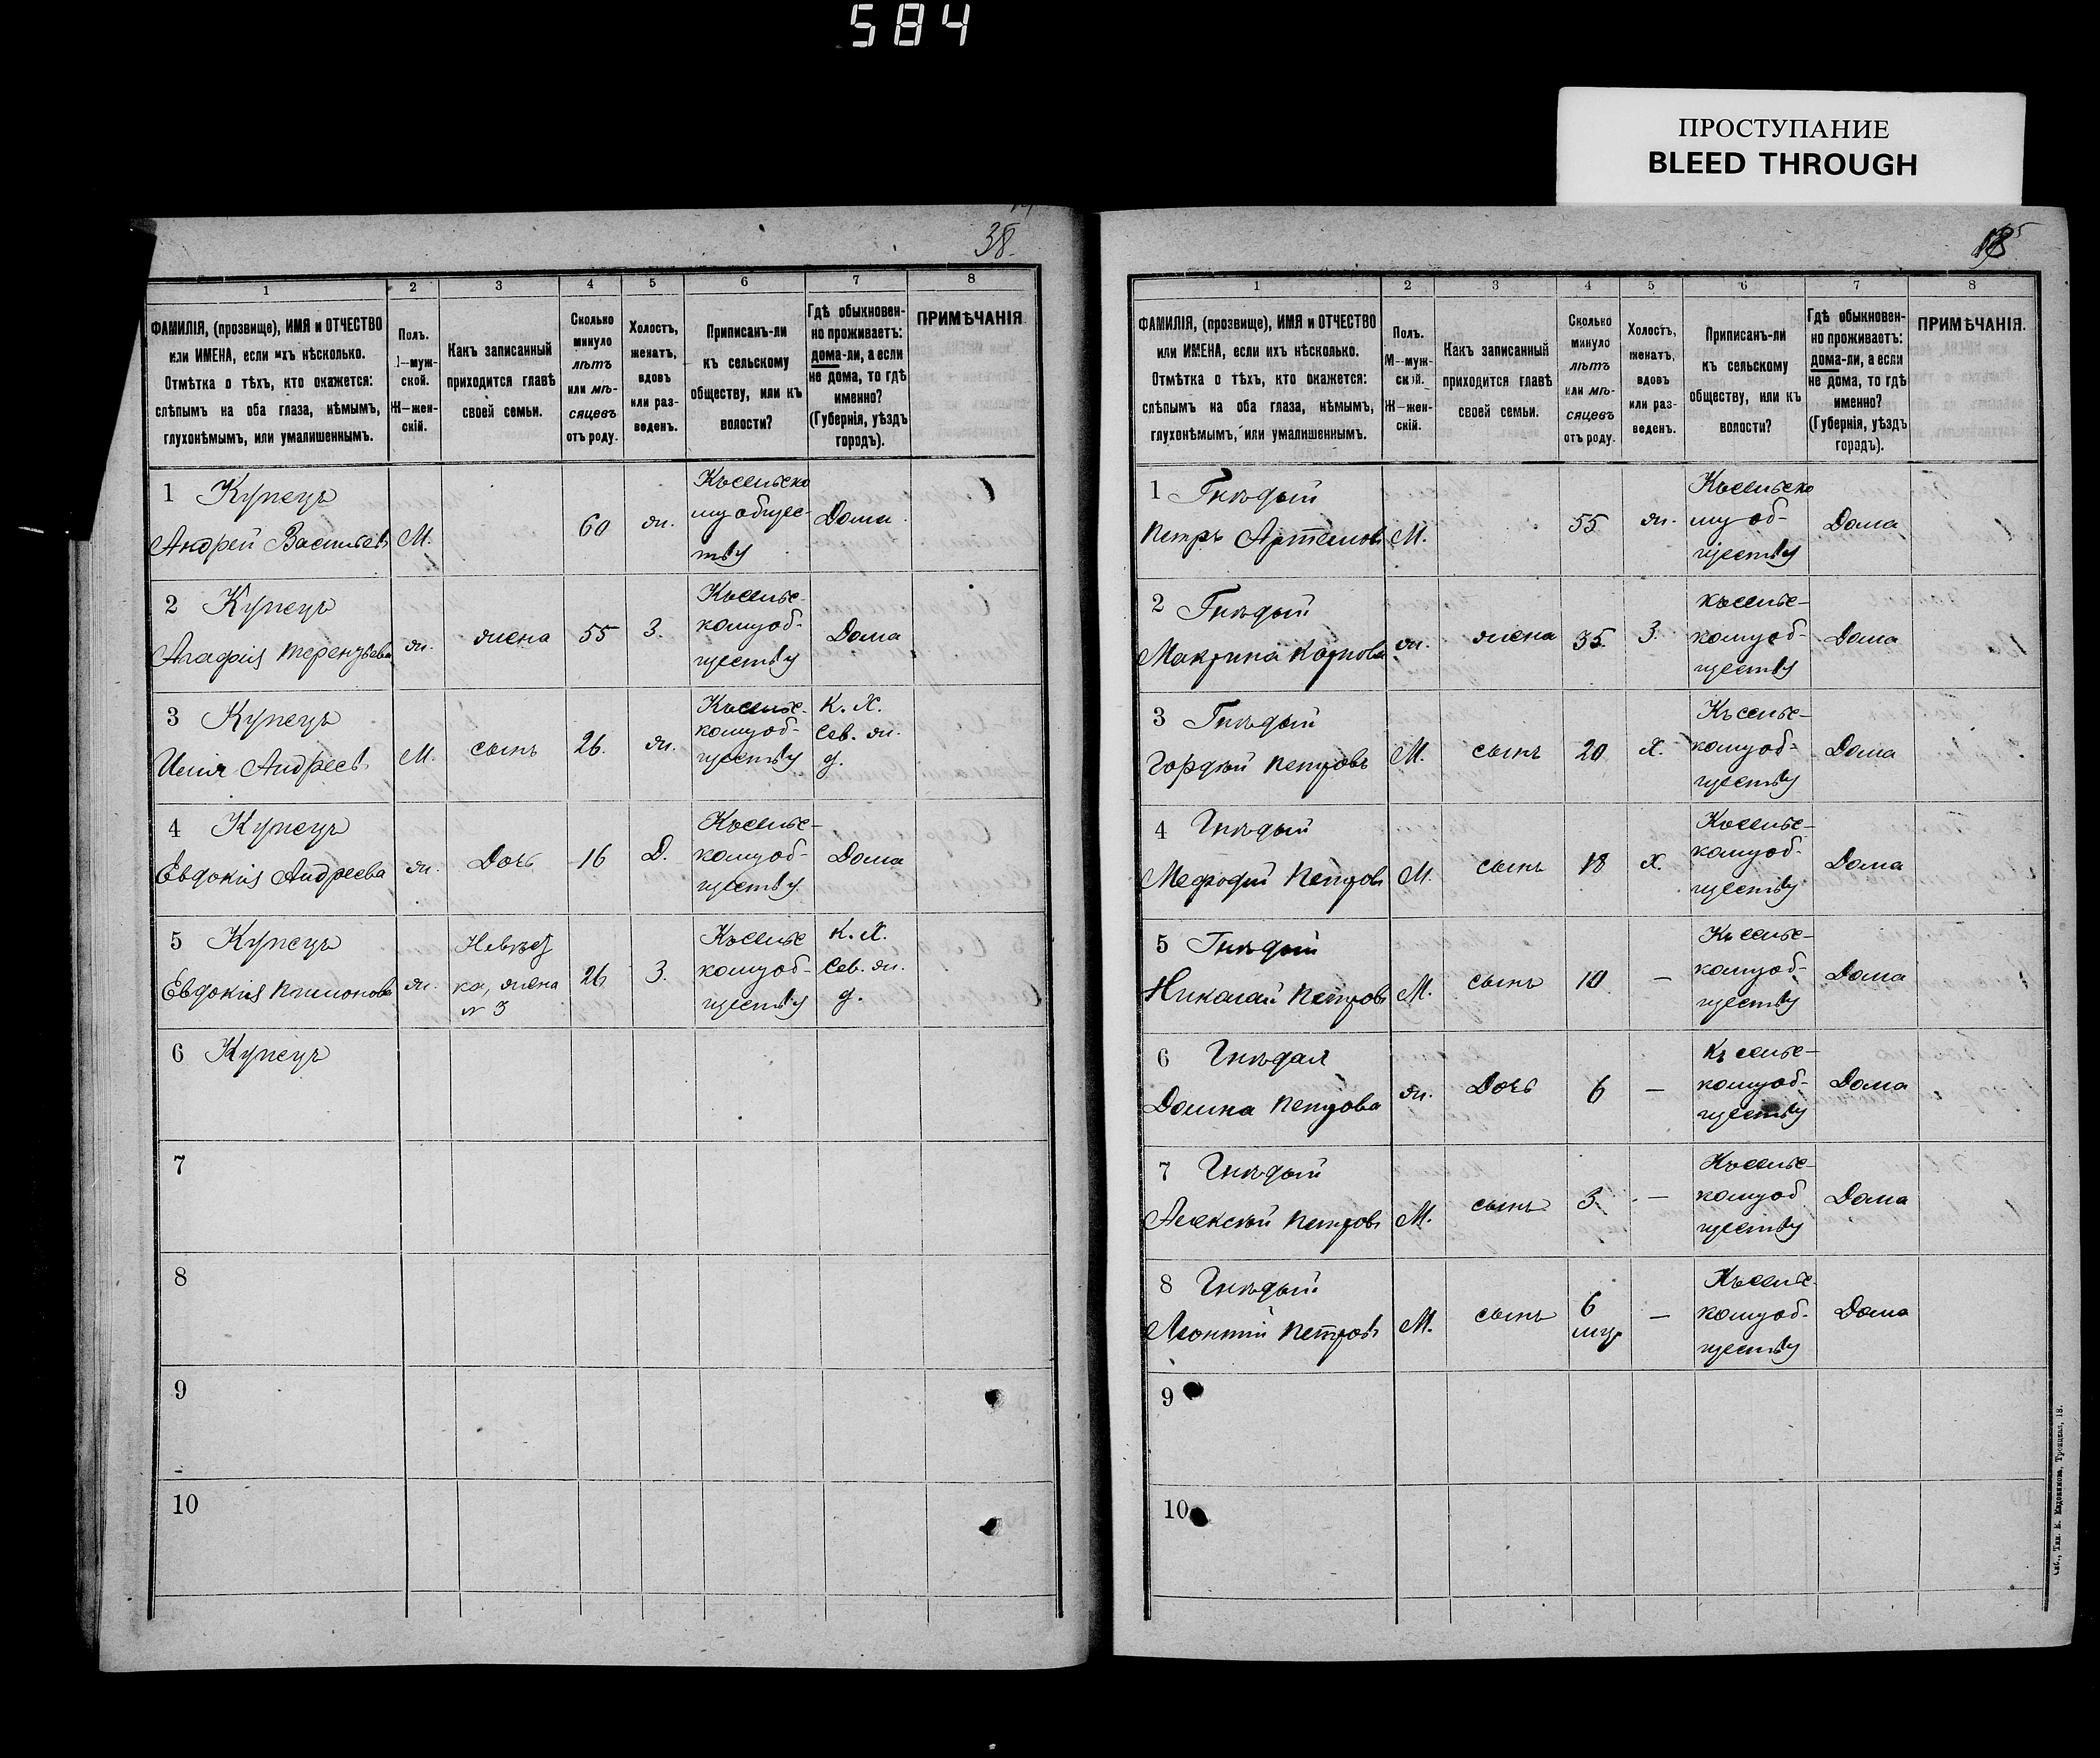 584
ПРОСТУПАНИЕ
BLEED THROUGH
38.
1
2
3
4
5
6
7
8
ФАМИЛІЯ, (прозвище), ИМЯ и ОТЧЕСТВО
или ИМЕНА, если ихъ нѣсколько.
Отмѣтка о тѣхъ, кто окажется:
слѣпымъ на оба глаза, нѣмымъ,
глухонѣмымъ, или умалишеннымъ.
Полъ.
М—муж-
ской.
Ж—жен-
скій.
Какъ записанный
приходится главѣ
своей семьи.
Сколько
минуло
лѣтъ
или мѣ-
сяцевъ
отъ роду.
Холостъ,
женатъ,
вдовъ
или раз-
веденъ.
Приписанъ-ли
къ сельскому
обществу, или къ
волости?
Гдѣ обыкновен-
но проживаетъ:
дома-ли, а если
не дома, то гдѣ
именно?
(Губернія, уѣздъ
городъ).
ПРИМѢЧАНІЯ
1 Купецъ
Андрей Васильевъ М. 60 ж. Къ сельско
му общес-
тву Дома
2 Купецъ
Агафія Терентьева ж. жена 55 З. Къ сельс-
кому об-
ществу Дома
3 Купецъ
Илья Андреевъ М. сынъ 26. ж. Къ сельс-
кому об-
ществу К. Х.
Сев. ж.
д.
4 Купецъ
Евдокія Андреева ж. Дочь 16 Д. Къ сельс-
кому об-
ществу Дома
5 Купецъ
Евдокія ж. Невѣст
ка, жена
№ 3 26 З. Къ сельс
кому об-
ществу К. Х.
Сев. ж.
д.
6 Купецъ
7
8
9
10
1
2
3
4
5
6
7
8
ФАМИЛІЯ, (прозвище), ИМЯ и ОТЧЕСТВО
или ИМЕНА, если ихъ нѣсколько.
Отмѣтка о тѣхъ, кто окажется:
слѣпымъ на оба глаза, нѣмымъ,
глухонѣмымъ, или умалишеннымъ.
Полъ.
М—муж-
ской.
Ж—жен-
скій.
Какъ записанный
приходится главѣ
своей семьи.
Сколько
минуло
лѣтъ
или мѣ-
сяцевъ
отъ роду.
Холостъ,
женатъ,
вдовъ
или раз-
веденъ.
Приписанъ-ли
къ сельскому
обществу, или къ
волости?
Гдѣ обыкновен-
но проживаетъ:
дома-ли, а если
не дома, то гдѣ
именно?
(Губернія, уѣздъ
городъ).
ПРИМѢЧАНІЯ.
1 Гнѣдый
Петръ Артемовъ М. 55 ж. Къ сельско
му об-
ществу Дома
2 Гнѣдый
Макрина Карпова ж. жена 35. З. къ сельс-
кому об-
ществу Дома
3 Гнѣдый
Гордѣй Петровъ М. сынъ 20 Х. Къ сельс-
кому об-
ществу Дома
4 Гнѣдый
Мефодій Петровъ М. сынъ 18 Х. Къ сельс-
кому об-
ществу Дома
5 Гнѣдый
Николай Петровъ М. сынъ 10 — Къ сельс-
кому об-
ществу Дома
6 Гнѣдая
Домна Петрова ж. Дочь 6 — Къ сельс-
кому об-
ществу Дома
7 Гнѣдый
Алексѣй Петровъ М. сынъ 3. — Къ сельс-
кому об
ществу Дома
8 Гнѣдый
Леонтій Петровъ М. сынъ 6
мц. — Къ сельс-
кому об-
ществу Дома
9
10